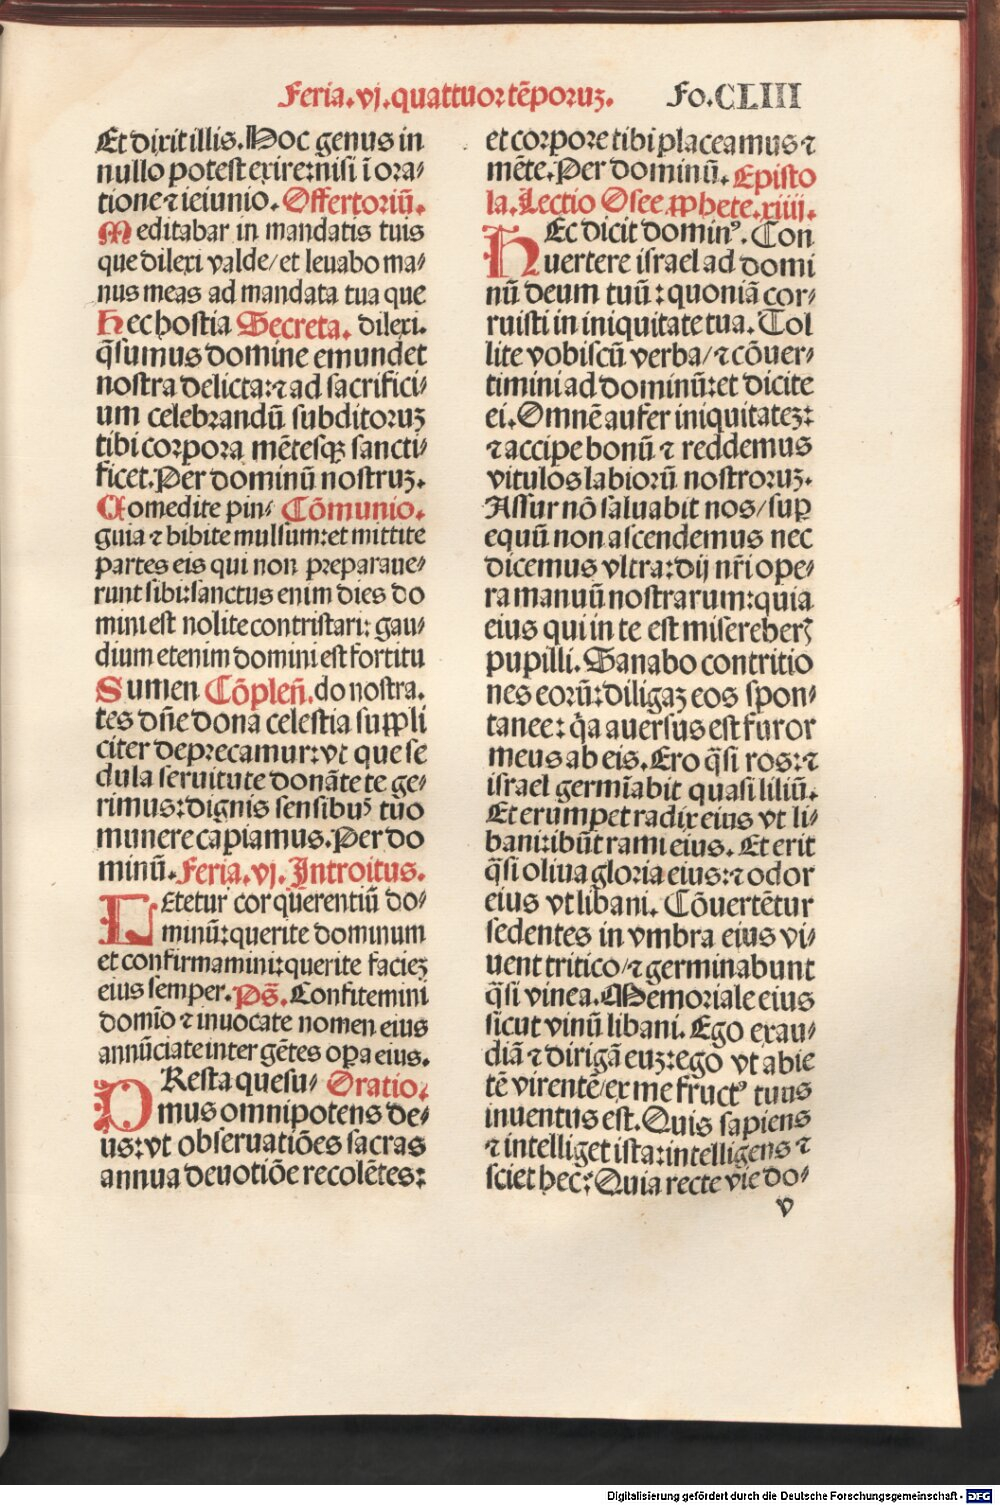 Feria.vj.quattuor tēporuꝫ. Fo.CLIII
Et dixit illis. Hoc genus in
nullo potest exire: nisi ī ora⸗
tione ⁊ ieiunio. Offertoriū.
Meditabar in mandatis tuis
que dilexi valde/ et leuabo ma⸗
nus meas ad mandata tua que
Hec hostia Secreta. dilexi.
q̄sumus domine emundet
nostra delicta: ⁊ ad sacrifici⸗
um celebrandū subditoruꝫ
tibi corpora mētesqꝫ sancti⸗
ficet. Per dominū nostruꝫ.
Comedite pin⸗ Cōmunio.
guia ⁊ bibite mulsum: et mittite
partes eis qui non preparaue⸗
runt sibi: sanctus enim dies do
mini est nolite contristari: gau⸗
dium etenim domini est fortitu
Sumen Cōpleñ. do nostra.
tes dñe dona celestia suppli
citer deprecamur: vt que se
dula seruitute donāte te ge⸗
rimus: dignis sensibuꝰ tuo
munere capiamus. Per do
minū. Feria.vj. Introitus.
Letetur cor querentiū do⸗
minū: querite dominum
et confirmamini: querite facieꝫ
eius semper. Ps̄. Confitemini
domīo ⁊ inuocate nomen eius
annūciate inter gētes oꝑa eius.
PResta quesu⸗ Oratio.
mus omnipotens de⸗
us: vt obseruatiōes sacras
annua deuotiōe recolētes:
et corpore tibi placeamus ⁊
mēte. Per dominū. Episto
la. Lectio Osee ꝓphete.xiiij.
HEc dicit dominꝰ. Con
uertere israel ad domi
nū deum tuū: quoniā cor⸗
ruisti in iniquitate tua. Tol
lite vobiscū verba/ ⁊ cōuer⸗
timini ad dominū: et dicite
ei. Omnē aufer iniquitateꝫ:
⁊ accipe bonū ⁊ reddemus
vitulos labiorū nostroruꝫ.
Assur nō saluabit nos/ suꝑ
equū non ascendemus nec
dicemus vltra: dij nr̄i ope⸗
ra manuū nostrarum: quia
eius qui in te est misereberꝭ
pupilli. Sanabo contritio
nes eorū: diligaꝫ eos spon⸗
tanee: q̄a auersus est furor
meus ab eis. Ero q̄si ros: ⁊
israel germīabit quasi liliū.
Et erumpet radix eius vt li⸗
bani: ibūt rami eius. Et erit
q̄si oliua gloria eius: ⁊ odor
eius vt libani. Cōuertētur
sedentes in vmbra eius vi⸗
uent tritico/ ⁊ germinabunt
q̄si vinea. Memoriale eius
sicut vinū libani. Ego exau⸗
diā ⁊ dirigā euꝫ: ego vt abie
tē virentē/ ex me fructꝰ tuus
inuentus est. Quis sapiens
⁊ intelliget ista: intelligens ⁊
sciet hec: Quia recte vie do⸗
v
Digitalisierung gefördert durch die Deutsche Forschungsgemeinschaft - DFG